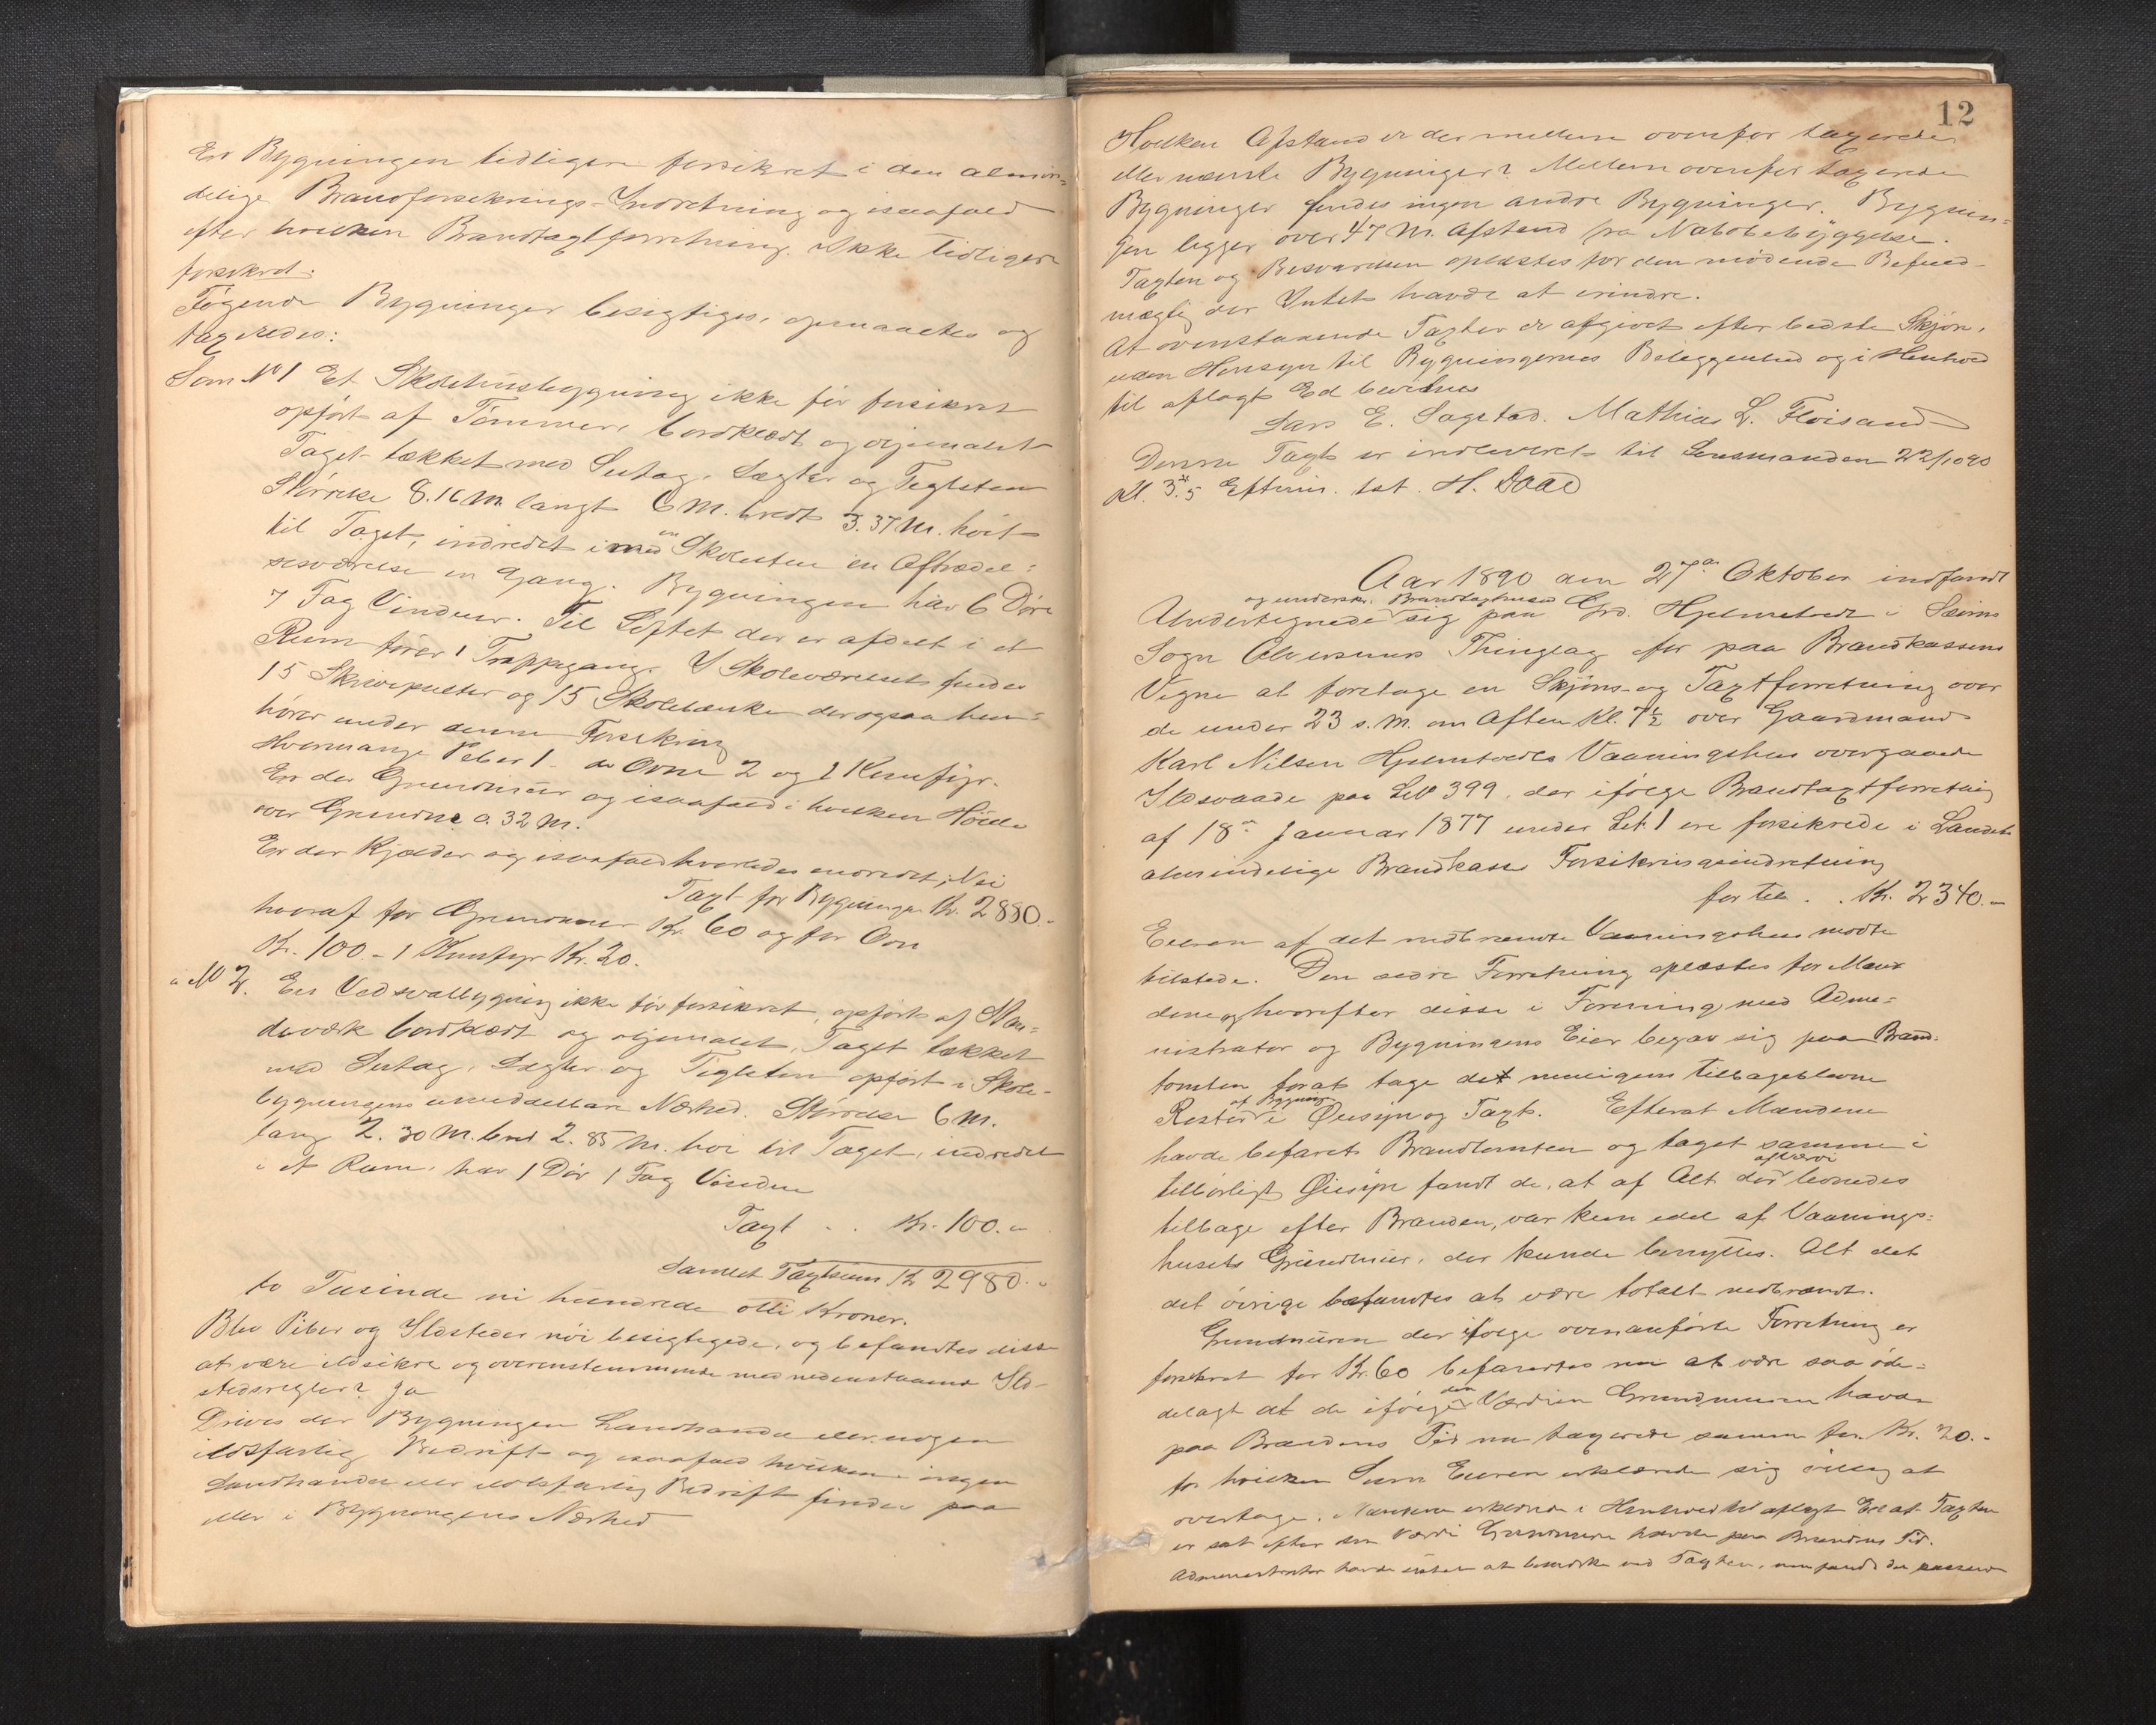 Er Bygningen tidligere forsikret i den almin-
delige Brandforsikrings-Indretning og isaafald
efter hvilken Brandtaxtforretning. Ikke tidligere
forsikret.
Følgende Bygninger besigtiges, opmaaltes og
taxeredes:
Som No 1 Et Skolehusbygning ikke før forsikret
opført af Tømmer bordklædt og oljemalet
Taget tækket med Sutag, Lægter og Teglsten
Størrelse 8.16 M. langt 6 M. bredt 3.37 M. høit
til Taget, indredet i med en Skolestue en Aftrædel=
sesværelse en Gang. Bygningen har 6 Døre
7 Fag Vinduer. Til Loftet der er afdelt i et
Rum fører 1 Trappegang. I Skoleværelset findes
15 Skrivepulter og 15 Skolebænke der ogsaa hen=
hører under denne Forsikring
Hvormange Piber 1 - do Ovne 2 og 1 Komfyr.
Er der Grundmur og isaafald i hvilken Høide
over Grunden 0.32 M.
Er der Kjælder og isaafald hvorledes indredet; Nei
Taxt for Bygningen Kr. 2880.-
hvoraf for Grundmur Kr. 60 og for Ovn
Kr. 100.- 1 Komfyr Kr. 20.
" No 2. En Vedsvalbygning ikke før forsikret, opført af Stan=
deværk bordklædt og oljemalet, Taget tækket
med Sutag, Lægter og Teglsten opført i Skole-
bygningens umiddelbare Nærhed. Størrelse 6 M.
lang 2.30 M. bred 2.85 M. høi til Taget, indredet
i et Rum, har 1 Dør 1 Fag Vindue
Taxt . . Kr. 100.-
Samlet Taxtsum Kr 2980.-
to Tusinde ni hundrede otti Kroner.
Blev Piber og Ildsteder nøi besigtigede, og befandtes disse
at være ildsikre og overensstemmende med nedenstaaende Ild-
stedsregler? Ja
Drives der i Bygningen Landhandel eller nogen
ildsfarlig Bedrift og isaafald hvilken ingen
Landhandel eller ildsfarlig Bedrift finder paa
eller i Bygningens Nærhed
12
Hvilken Afstand er der mellem ovenfor taxerede
eller nærmeste Bygninger? Mellem ovenfor taxerede
Bygninger findes ingen andre Bygninger. Bygnin=
gen ligger over 47 M. Afstand fra Nabobebyggelse.
Taxten og Besvarelsen oplæstes for den mødende Befuld-
mægtig der Intet havde at erindre.
At ovenstaaende Taxter er afgivet efter bedste Skjøn,
uden Hensyn til Bygningernes Beleggenhed og i Henhold
til aflagt Ed bevidnes
Lars E. Sagstad. Mathias L. Fløisand
Denne Taxt er indleveret til Lensmanden 22/10 90
Kl. 3.5 Efterm. tst. H. Daae
Aar 1890 den 27de Oktober indfandt
og undersk. Brandtaxtmænd
Undertegnede sig paa Grd. Hjelmtvedt i Seims
Sogn Alversunds Thinglag for paa Brandkassens
Vegne at foretage en Skjøns- og Taxtforretning over
de under 23 s. M. om Aften Kl. 7½ over Gaardmand
Karl Nilsen Hjelmtvedts Vaaningshus overgaaede
Ildsvaade paa LN 399. der ifølge Brandtaxtforretning
af 18de Januar 1877 under Lit. 1 ere forsikrede i Landets
almindelige Brandkasse Forsikringsindretning
for til . . Kr. 2340.-
Eieren af det nedbrændte Vaaningshus mødte
tilstede. Den ældre Forretning oplæstes for Mæn
dene og hvorefter disse i Forening med Admi=
nistrator og Bygningens Eier begav sig paa Brand=
tomten forat tage det muligens tilbageblevne
Rester af Bygning i Øiesyn og Taxt. Efterat Mændene
havde befaret Brandtomten og taget samme i
tilbørligt Øiesyn fandt de, at af Alt der af Værdi levnedes
tilbage efter Branden, var kun edel af Vaanings=
husets Grundmur, der kunde benyttes. Alt det
det øvrige befandtes at være totalt nedbrændt.
Grundmuren der ifølge ovenanførte Forretning er
forsikret for Kr. 60 befandtes nu at være saa øde=
delagt at de ifølge den Værdien Grundmuren havde
paa Brandens Tid nu taxerede samme for Kr. 20.-
for hvilken Sum Eieren erklærede sig villig at
overtage. Mændene erklærede i Henhold til aflagt Ed at Taxten
er sat efter den Værdi Grundmuren havde paa Brandens Tid.
Administrator havde intet at bemærke ved Taxten, men fandt den passende